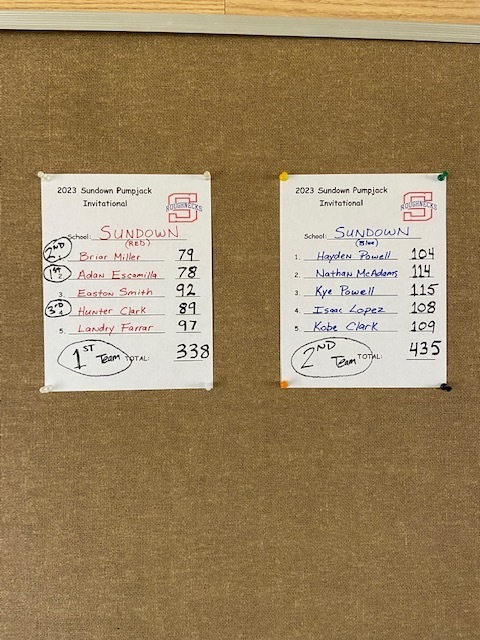 2023 Sundown Pumpjack
Invitational
S
ROUGHNECKS
School: SUNDOWN
(RED)
2ND 1. Briar Miller 79
1ST 2. Adan Escamilla 78
3. Easton Smith 92
3RD 4. Hunter Clark 89
5. Landry Farrar 97
1ST Team TOTAL: 338
2023 Sundown Pumpjack
Invitational
S
ROUGHNECKS
School: SUNDOWN
(Blue)
1. Hayden Powell 104
2. Nathan McAdams 114
3. Kye Powell 115
4. Isaac Lopez 108
5. Kobe Clark 109
2ND Team TOTAL: 435